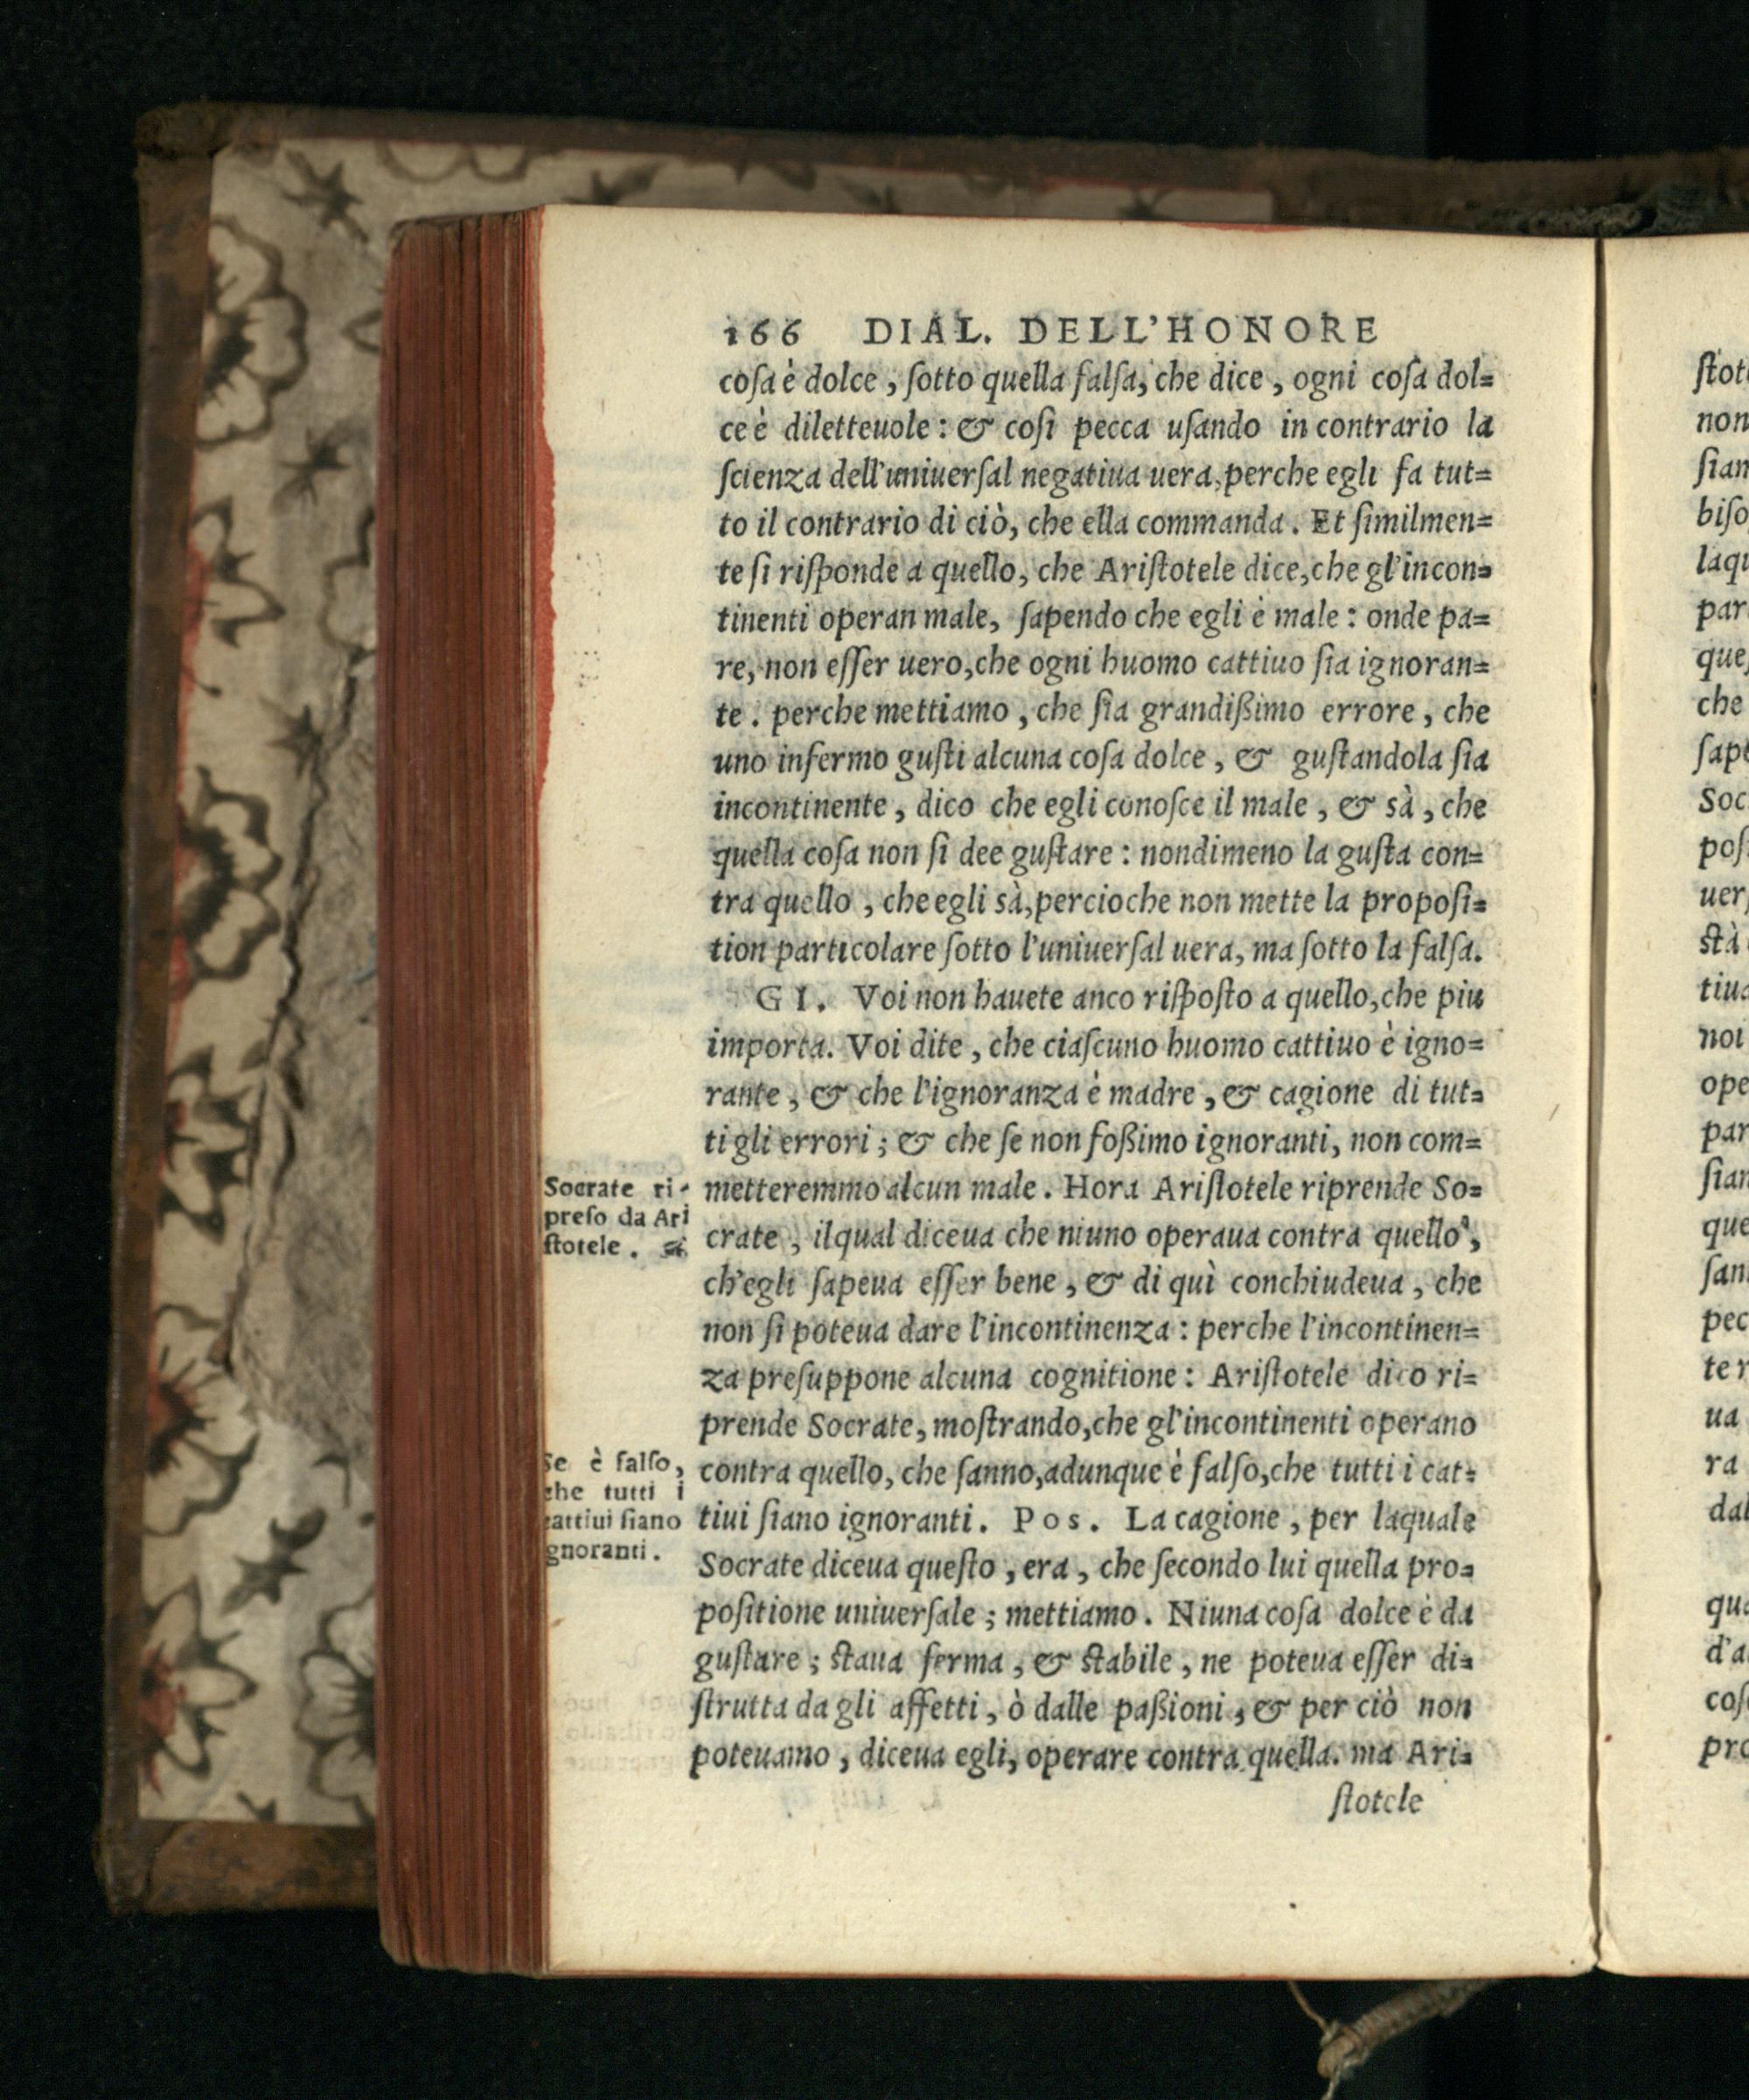 166 DIAL. DELL'HONORE
coſa è dolce, ſotto quella falſa, che dice, ogni coſa dol=
ce è diletteuole: & coſi pecca uſando in contrario la
ſcienza dell'uniuerſal negatiua uera, perche egli fa tut=
to il contrario di ciò, che ella commanda. Et ſimilmen=
te ſi riſponde a quello, che Ariſtotele dice, che gl'incon=
tinenti operan male, ſapendo che egli è male: onde pa=
re, non eſſer uero, che ogni huomo cattiuo ſia ignoran=
te. perche mettiamo, che ſia grandißimo errore, che
uno infermo guſti alcuna coſa dolce, & guſtandola ſia
incontinente, dico che egli conoſce il male, & sà, che
quella coſa non ſi dee guſtare: nondimeno la guſta con=
tra quello, che egli sà, percioche non mette la propoſi=
tion particolare ſotto l'uniuerſal uera, ma ſotto la falſa.
GI. Voi non hauete anco riſpoſto a quello, che piu
importa. Voi dite, che ciaſcuno huomo cattiuo è igno=
rante, & che l'ignoranza è madre, & cagione di tut=
ti gli errori; & che ſe non foßimo ignoranti, non com=
metteremmo alcun male. Hora Ariſtotele riprende So=
crate, ilqual diceua che niuno operaua contra quello,
ch'egli ſapeua eſſer bene, & di quì conchiudeua, che
non ſi poteua dare l'incontinenza: perche l'incontinen=
za preſuppone alcuna cognitione: Ariſtotele dico ri=
prende Socrate, moſtrando, che gl'incontinenti operano
contra quello, che ſanno, adunque è falſo, che tutti i cat=
tiui ſiano ignoranti. Pos. La cagione, per laquale
Socrate diceua queſto, era, che ſecondo lui quella pro=
poſitione uniuerſale; mettiamo. Niuna coſa dolce è da
guſtare; ſtaua ferma, & ſtabile, ne poteua eſſer di=
ſtrutta da gli affetti, ò dalle paßioni, & per ciò non
poteuamo, diceua egli, operare contra quella. ma Ari=
ſtotele
Socrate ri-
preſo da Ari
ſtotele.
Se è falſo,
che tutti i
cattiui ſiano
gnoranti.
ſtot
non
ſian
biſo
laqu
par
queſ
che
ſap
Soc
poſ
uer
ſtà
tiua
noi
ope
par
ſian
que
ſan
pec
te
ua
ra
dal
qua
d'a
coſ
pro